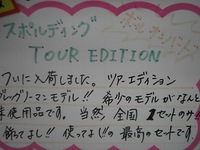 スポルディング
TOUR EDITION
ついに入荷しました。ツアーエディション
グレッグノーマンモデル!! 希少のモデルがなんと
未使用品です。当然、全国1セットのサ
飾ってよし!! 使ってよし!!の最高のセットです。